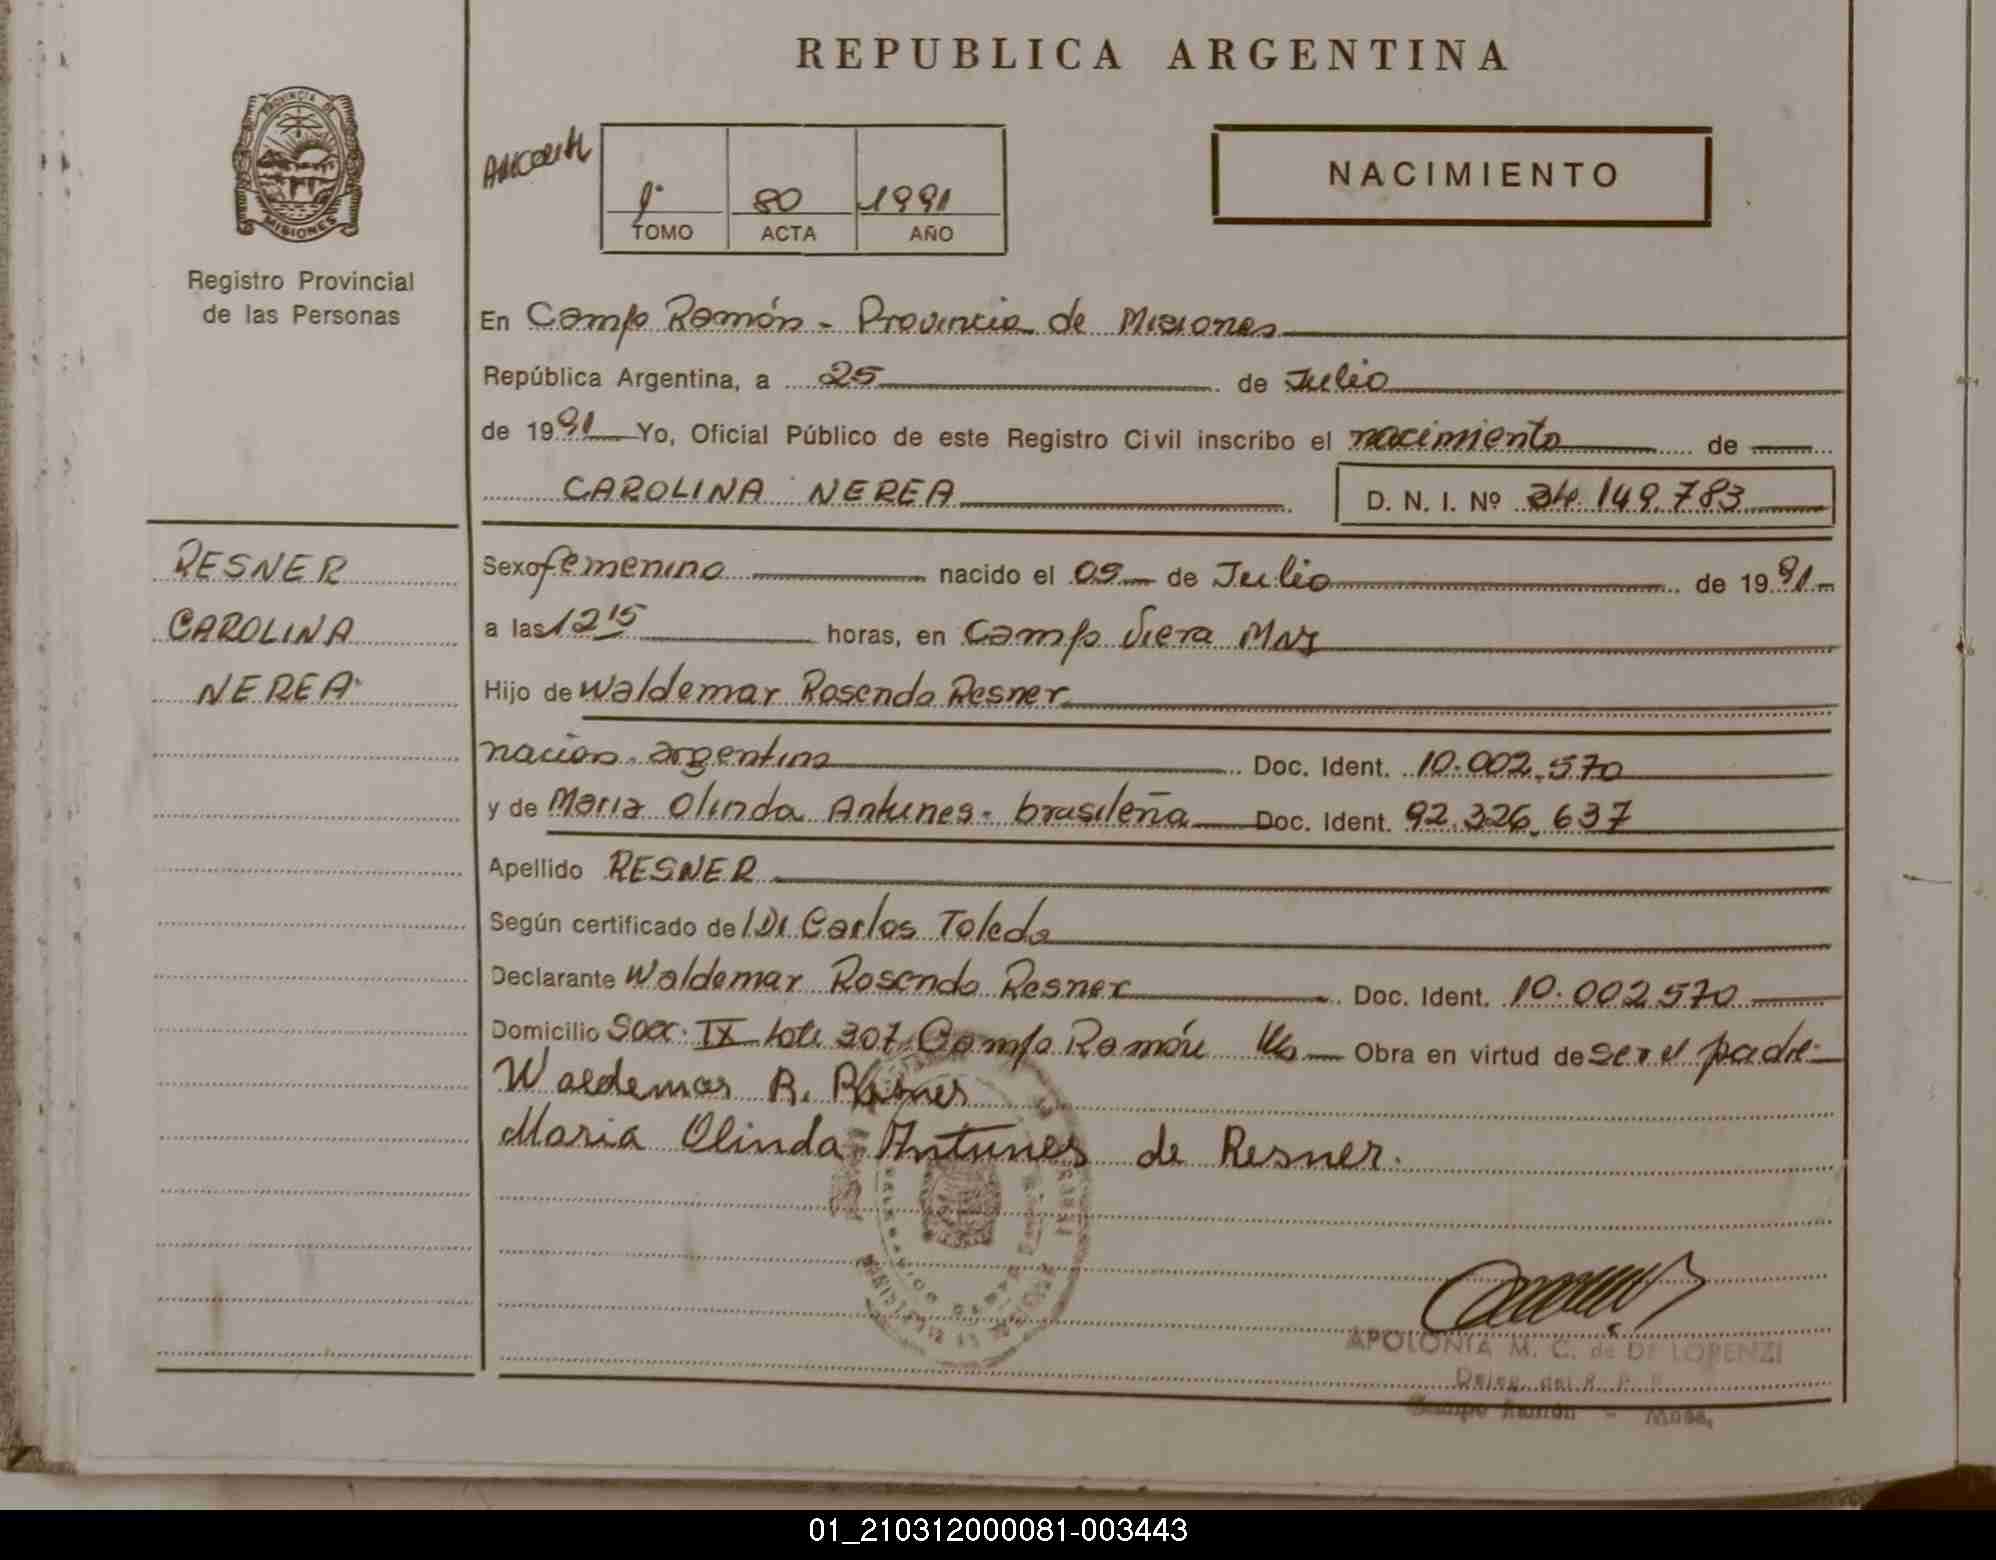 REPUBLICA ARGENTINA
PROVINCIA DE
MISIONES
Registro Provincial
de las Personas
1º 80 1991
TOMO ACTA AÑO
NACIMIENTO
En Campo Ramón - Provincia de Misiones
República Argentina, a 25 de Julio
de 1991 Yo, Oficial Público de este Registro Civil inscribo el nacimiento de
CAROLINA NEREA D. N. I. Nº 34.149.783
RESNER
CAROLINA
NEREA
Sexo femenino nacido el 09 de Julio de 1991
a las 12 15 horas, en Campo Viera Mns
Hijo de Waldemar Rosendo Resner
nacion. argentina Doc. Ident. 10.002.570
y de Maria Olinda Antunes - brasileña Doc. Ident. 92.326.637
Apellido RESNER
Según certificado de Dr Carlos Toledo
Declarante Waldemar Rosendo Resner Doc. Ident. 10.002570
Domicilio Secc. IX Lote 307 Campo Ramón Obra en virtud de ser el padre
Waldemar R. Resner
Maria Olinda Antunes de Resner.
APOLONIA M. C. de DE LORENZI
Deleg. del R. P. P.
Campo Ramón - Mnes.
01_210312000081-003443